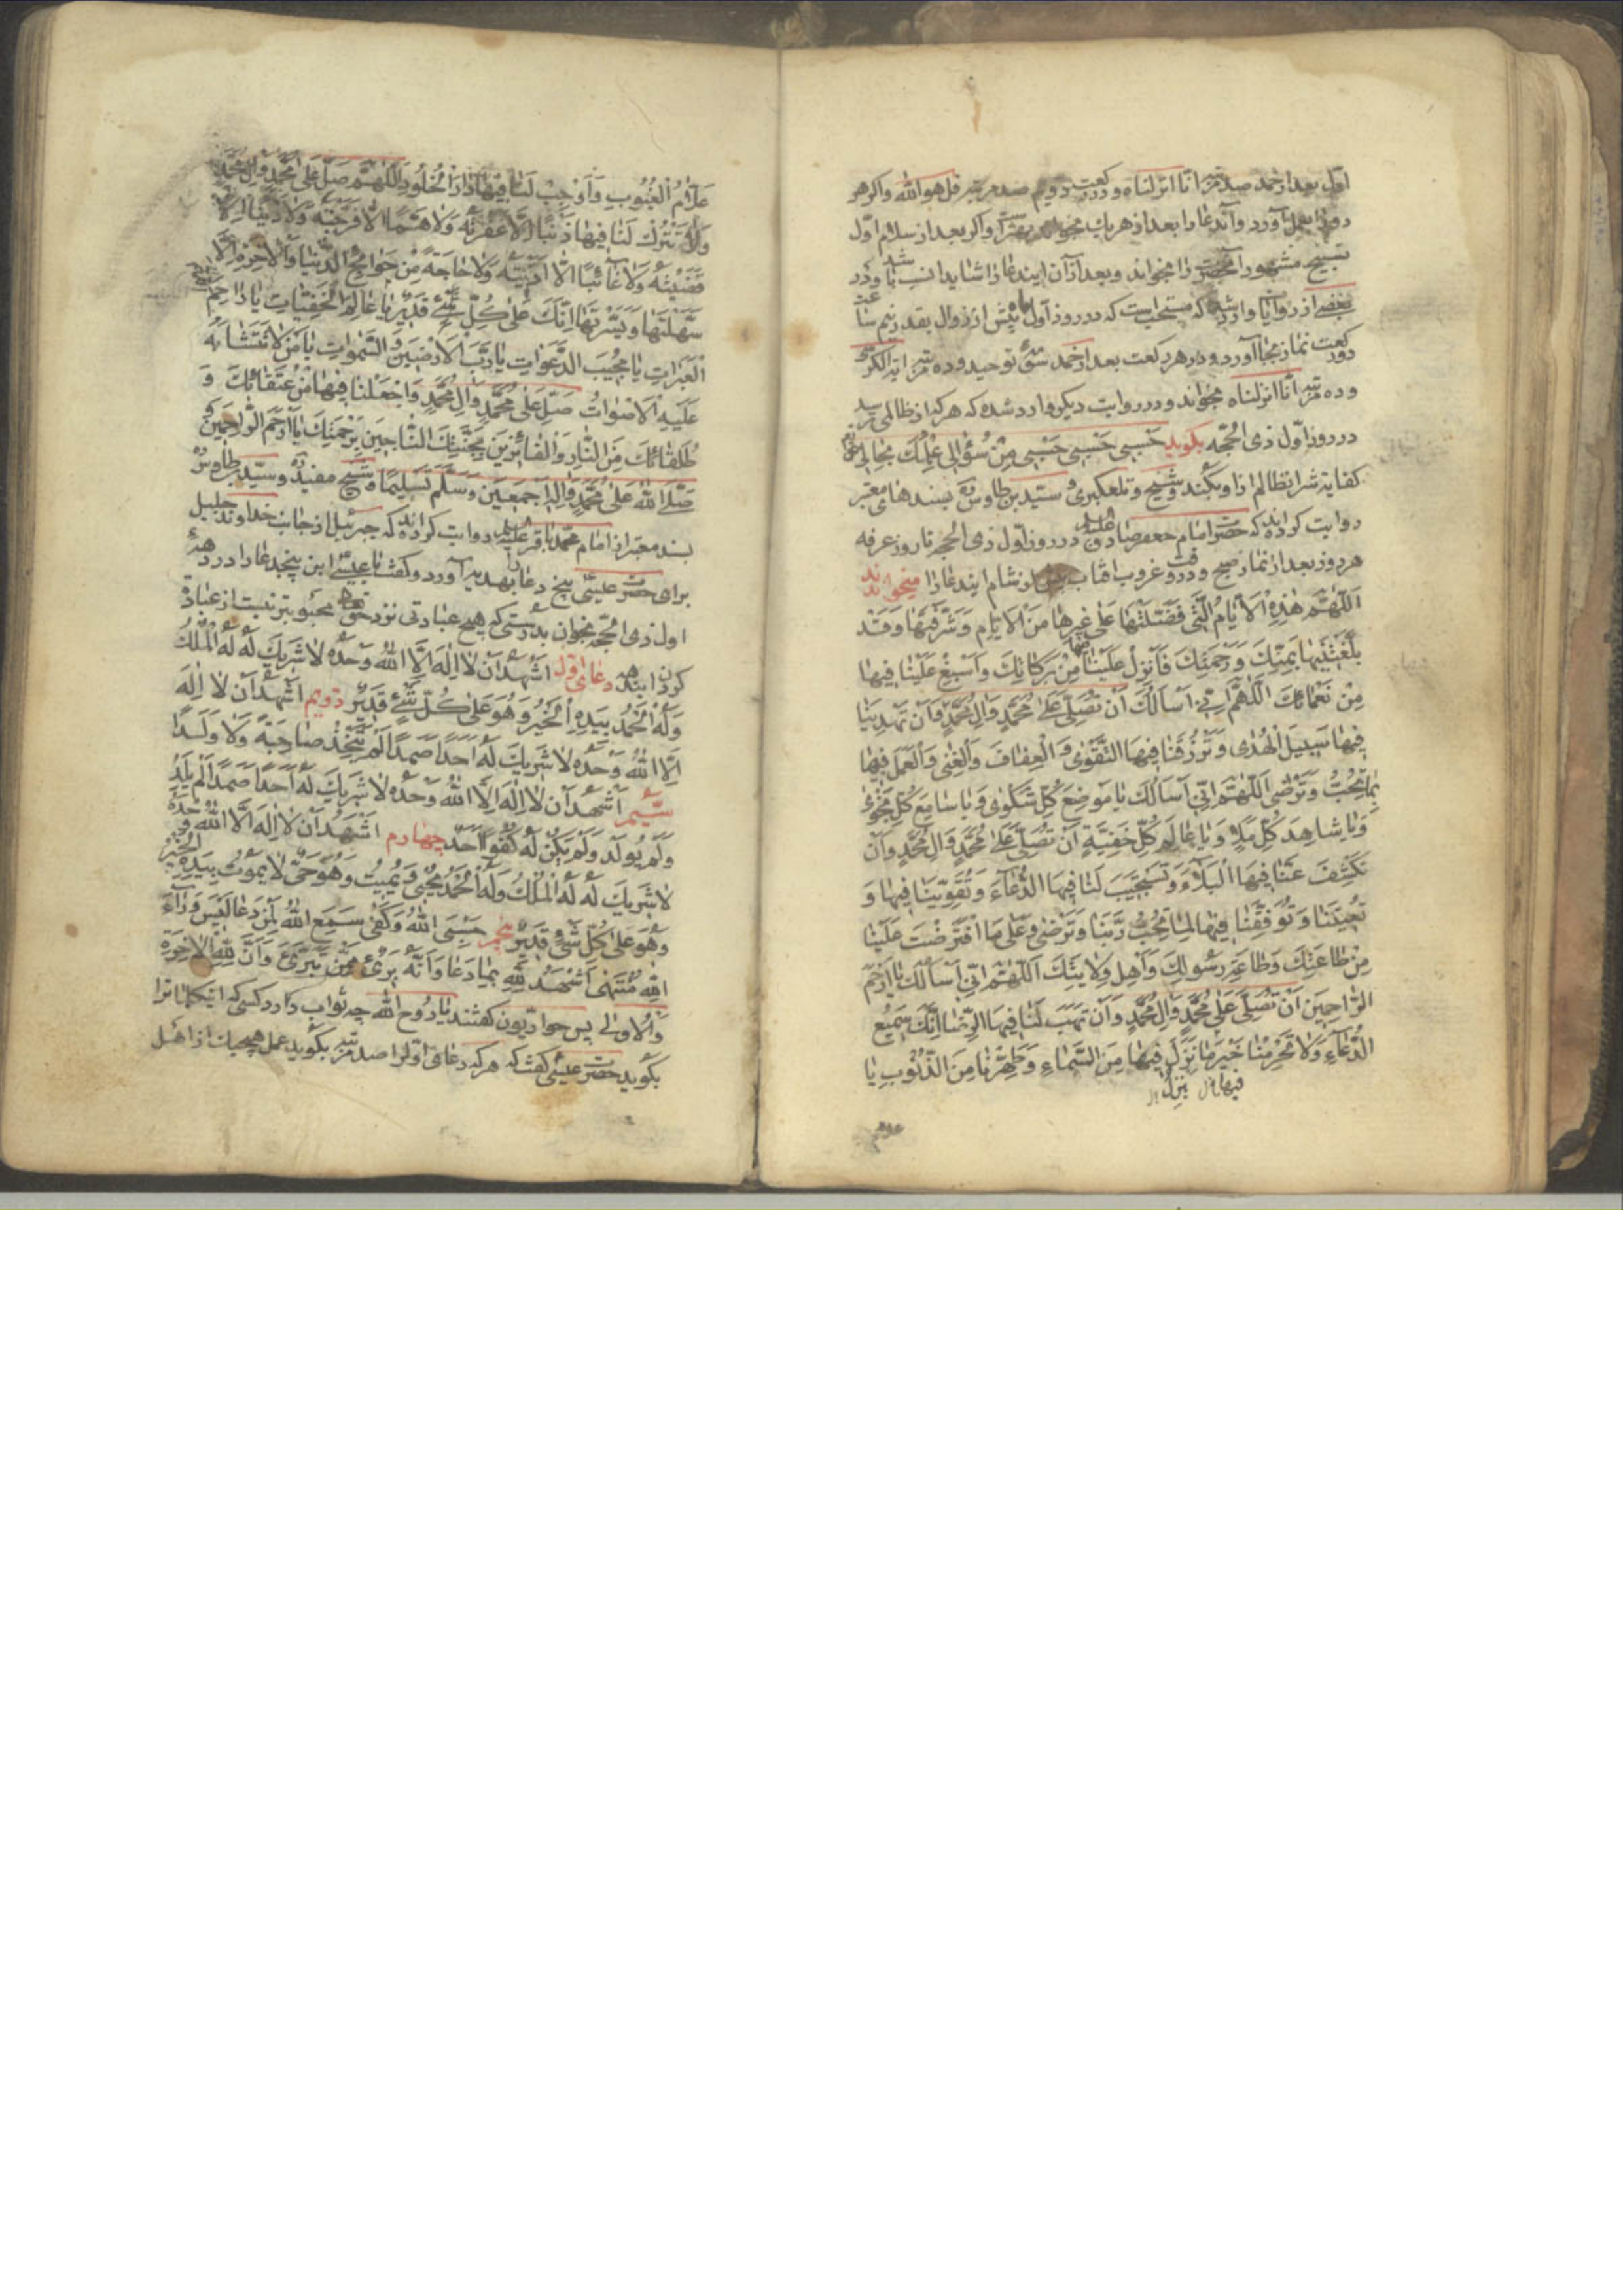 اول بعد از حمد صد مرتبه انا انزلناه و در رکعت دویم صد مرتبه قل هو الله و اکر هر
دو را بعمل آورد و آندعا را بعد از هر یک بخواند بهتر است و اکر بعد از سلام اول
تسبیح مشهور آنحضرت را بخواند و بعد از آن ایندعا را شاید انسب باشد و در
بعضی از روایات وارد شده که مستحب است که در روز اول ماه پیش از زوال بقدر نیم ساعت
دو رکعت نماز بجا آورد و در هر رکعت بعد از حمد سوره توحید و ده مرتبه آیة الکرسی
و ده مرتبه انا انزلناه بخواند و در روایت دیکر وارد شده که هر که از ظالمی ترسد
در روز اول ذی الحجه بکوید حَسْبی حَسْبی حَسْبی مِنْ سُؤالی عِلْمُكَ بِحالی
کفایة شر انظالم از او بکند و شیخ و تلعکبری و سید بن طاوس ره بسندهای معتبر
روایت کرده اند که حضرت امام جعفر صادق علیه السلم در روز اول ذی الحجه تا روز عرفه
هر روز بعد از نماز صبح و در وقت غروب افتاب پیش از نماز شام ایندعا را میخواندند
اَللّهُمَّ هذِهِ الْاَیّامُ الَّتی فَضَّلْتَها عَلی غَیْرِها مِنَ الْاَیّامِ وَ شَرَّفْتَها وَ قَدْ
بَلَّغْتَنیها بِمَنِّكَ وَ رَحْمَتِكَ فَاَنْزِلْ عَلَیْنا فیها مِنْ بَرَکاتِكَ وَ اَسْبِغْ عَلَیْنا فیها
مِنْ نَعْمائِكَ اَللّهُمَّ اِنّی اَسْاَلُكَ اَنْ تُصَلِّیَ عَلی مُحَمَّدٍ وَ الِ مُحَمَّدٍ وَ اَنْ تَهْدِیَنا
فیها سَبیلَ الْهُدی وَ تَرْزُقَنا فیهَا التَّقْوی وَ الْعِفافَ وَ الْغِنی وَ الْعَمَلَ فیها
بِما تُحِبُّ وَ تَرْضی اَللّهُمَّ اِنّی اَسْاَلُكَ یا مَوْضِعَ کُلِّ شَکْوی وَ یا سامِعَ کُلِّ نَجْوی
وَ یا شاهِدَ کُلِّ مَلَاءٍ وَ یا عالِمَ کُلِّ خَفِیَّةٍ اَنْ تُصَلِّیَ عَلی مُحَمَّدٍ وَ الِ مُحَمَّدٍ وَ اَنْ
تَکْشِفَ عَنّا فیهَا الْبَلاءَ وَ تَسْتَجیبَ لَنا فیهَا الدُّعاءَ وَ تُقَوِّیَنا فیها وَ
تُعینَنا وَ تُوَفِّقَنا فیها لِما تُحِبُّ رَبَّنا وَ تَرْضی وَ عَلی مَا افْتَرَضْتَ عَلَیْنا
مِنْ طاعَتِكَ وَ طاعَةِ رَسُولِكَ وَ اَهْلِ وِلایَتِكَ اَللّهُمَّ اِنّی اَسْاَلُكَ یا اَرْحَمَ
الرّاحِمینَ اَنْ تُصَلِّیَ عَلی مُحَمَّدٍ وَ الِ مُحَمَّدٍ وَ اَنْ تَهَبَ لَنا فیهَا الرِّضا اِنَّكَ سَمیعُ
الدُّعاءِ وَ لا تَحْرِمْنا خَیْرَ ما نَزَلَ فیها مِنَ السَّماءِ وَ طَهِّرْنا مِنَ الذُّنُوبِ یا
علام
عَلّامَ الْغُیُوبِ وَ اَوْجِبْ لَنا فیها دارَ الْخُلُودِ اَللّهُمَّ صَلِّ عَلی مُحَمَّدٍ وَ الِ مُحَمَّدٍ
وَ لا تَتْرُكْ لَنا فیها ذَنْبًا اِلّا غَفَرْتَهُ وَ لا هَمًّا اِلّا فَرَّجْتَهُ وَ لا دَیْنًا اِلّا
قَضَیْتَهُ وَ لا غائِبًا اِلّا اَدَّیْتَهُ وَ لا حاجَةً مِنْ حَوائِجِ الدُّنْیا وَ الْاخِرَةِ اِلّا
سَهَّلْتَها وَ یَسَّرْتَها اِنَّكَ عَلی کُلِّ شَیْءٍ قَدیرٌ یا عالِمَ الْخَفِیّاتِ یا راحِمَ
الْعَبَراتِ یا مُجیبَ الدَّعَواتِ یا رَبَّ الْاَرَضینَ وَ السَّمواتِ یا مَنْ لا تَتَشابَهُ
عَلَیْهِ الْاَصْواتُ صَلِّ عَلی مُحَمَّدٍ وَ الِ مُحَمَّدٍ وَ اجْعَلْنا فیها مِنْ عُتَقائِكَ وَ
طُلَقائِكَ مِنَ النّارِ وَ الْفائِزینَ بِجَنَّتِكَ النّاجینَ بِرَحْمَتِكَ یا اَرْحَمَ الرّاحِمینَ وَ
صَلَّی اللهُ عَلی مُحَمَّدٍ وَ الِهِ اَجْمَعینَ وَ سَلَّمَ تَسْلیمًا و شیخ مفید ره و سید بن طاوس ره
بسند معتبر از امام محمد باقر علیه السلم روایت کرده اند که جبرئیل از جانب خداوند جلیل
برای حضرت عیسی پنج دعا را بهدیه آورد و کفت یا عیسی این پنجدعا را در دهه
اول ذی الحجه بخوان بدرستی که هیچ عبادتی نزد حق تعالی محبوبتر نیست از عبادة
کردن این دهه دعای اول اَشْهَدُ اَنْ لا اِلهَ اِلَّا اللهُ وَحْدَهُ لا شَریكَ لَهُ لَهُ الْمُلْكُ
وَ لَهُ الْحَمْدُ بِیَدِهِ الْخَیْرُ وَ هُوَ عَلی کُلِّ شَیْءٍ قَدیرٌ دویم اَشْهَدُ اَنْ لا اِلهَ
اِلَّا اللهُ وَحْدَهُ لا شَریكَ لَهُ اَحَدًا صَمَدًا لَمْ یَتَّخِذْ صاحِبَةً وَ لا وَلَدًا
سیّم اَشْهَدُ اَنْ لا اِلهَ اِلَّا اللهُ وَحْدَهُ لا شَریكَ لَهُ اَحَدًا صَمَدًا لَمْ یَلِدْ
وَ لَمْ یُولَدْ وَ لَمْ یَکُنْ لَهُ کُفُوًا اَحَدٌ چهارم اَشْهَدُ اَنْ لا اِلهَ اِلَّا اللهُ وَحْدَهُ
لا شَریكَ لَهُ لَهُ الْمُلْكُ وَ لَهُ الْحَمْدُ یُحْیی وَ یُمیتُ وَ هُوَ حَیٌّ لا یَمُوتُ بِیَدِهِ الْخَیْرُ
وَ هُوَ عَلی کُلِّ شَیْءٍ قَدیرٌ پنجم حَسْبِیَ اللهُ وَ کَفی سَمِعَ اللهُ لِمَنْ دَعا لَیْسَ وَراءَ
اللهِ مُنْتَهی اَشْهَدُ لِلّهِ بِما دَعا وَ اَنَّهُ بَریءٌ مِمَّنْ تَبَرَّیءَ وَ اَنَّ لِلّهِ الْاخِرَةَ
وَ الْاُولی پس حواریون کفتند یا روح الله چه ثواب دارد کسی که اینکلمات را
بکوید حضرت عیسی کفت که هر که دعای اول را صد مرتبه بکوید عمل هیچیک از اهل